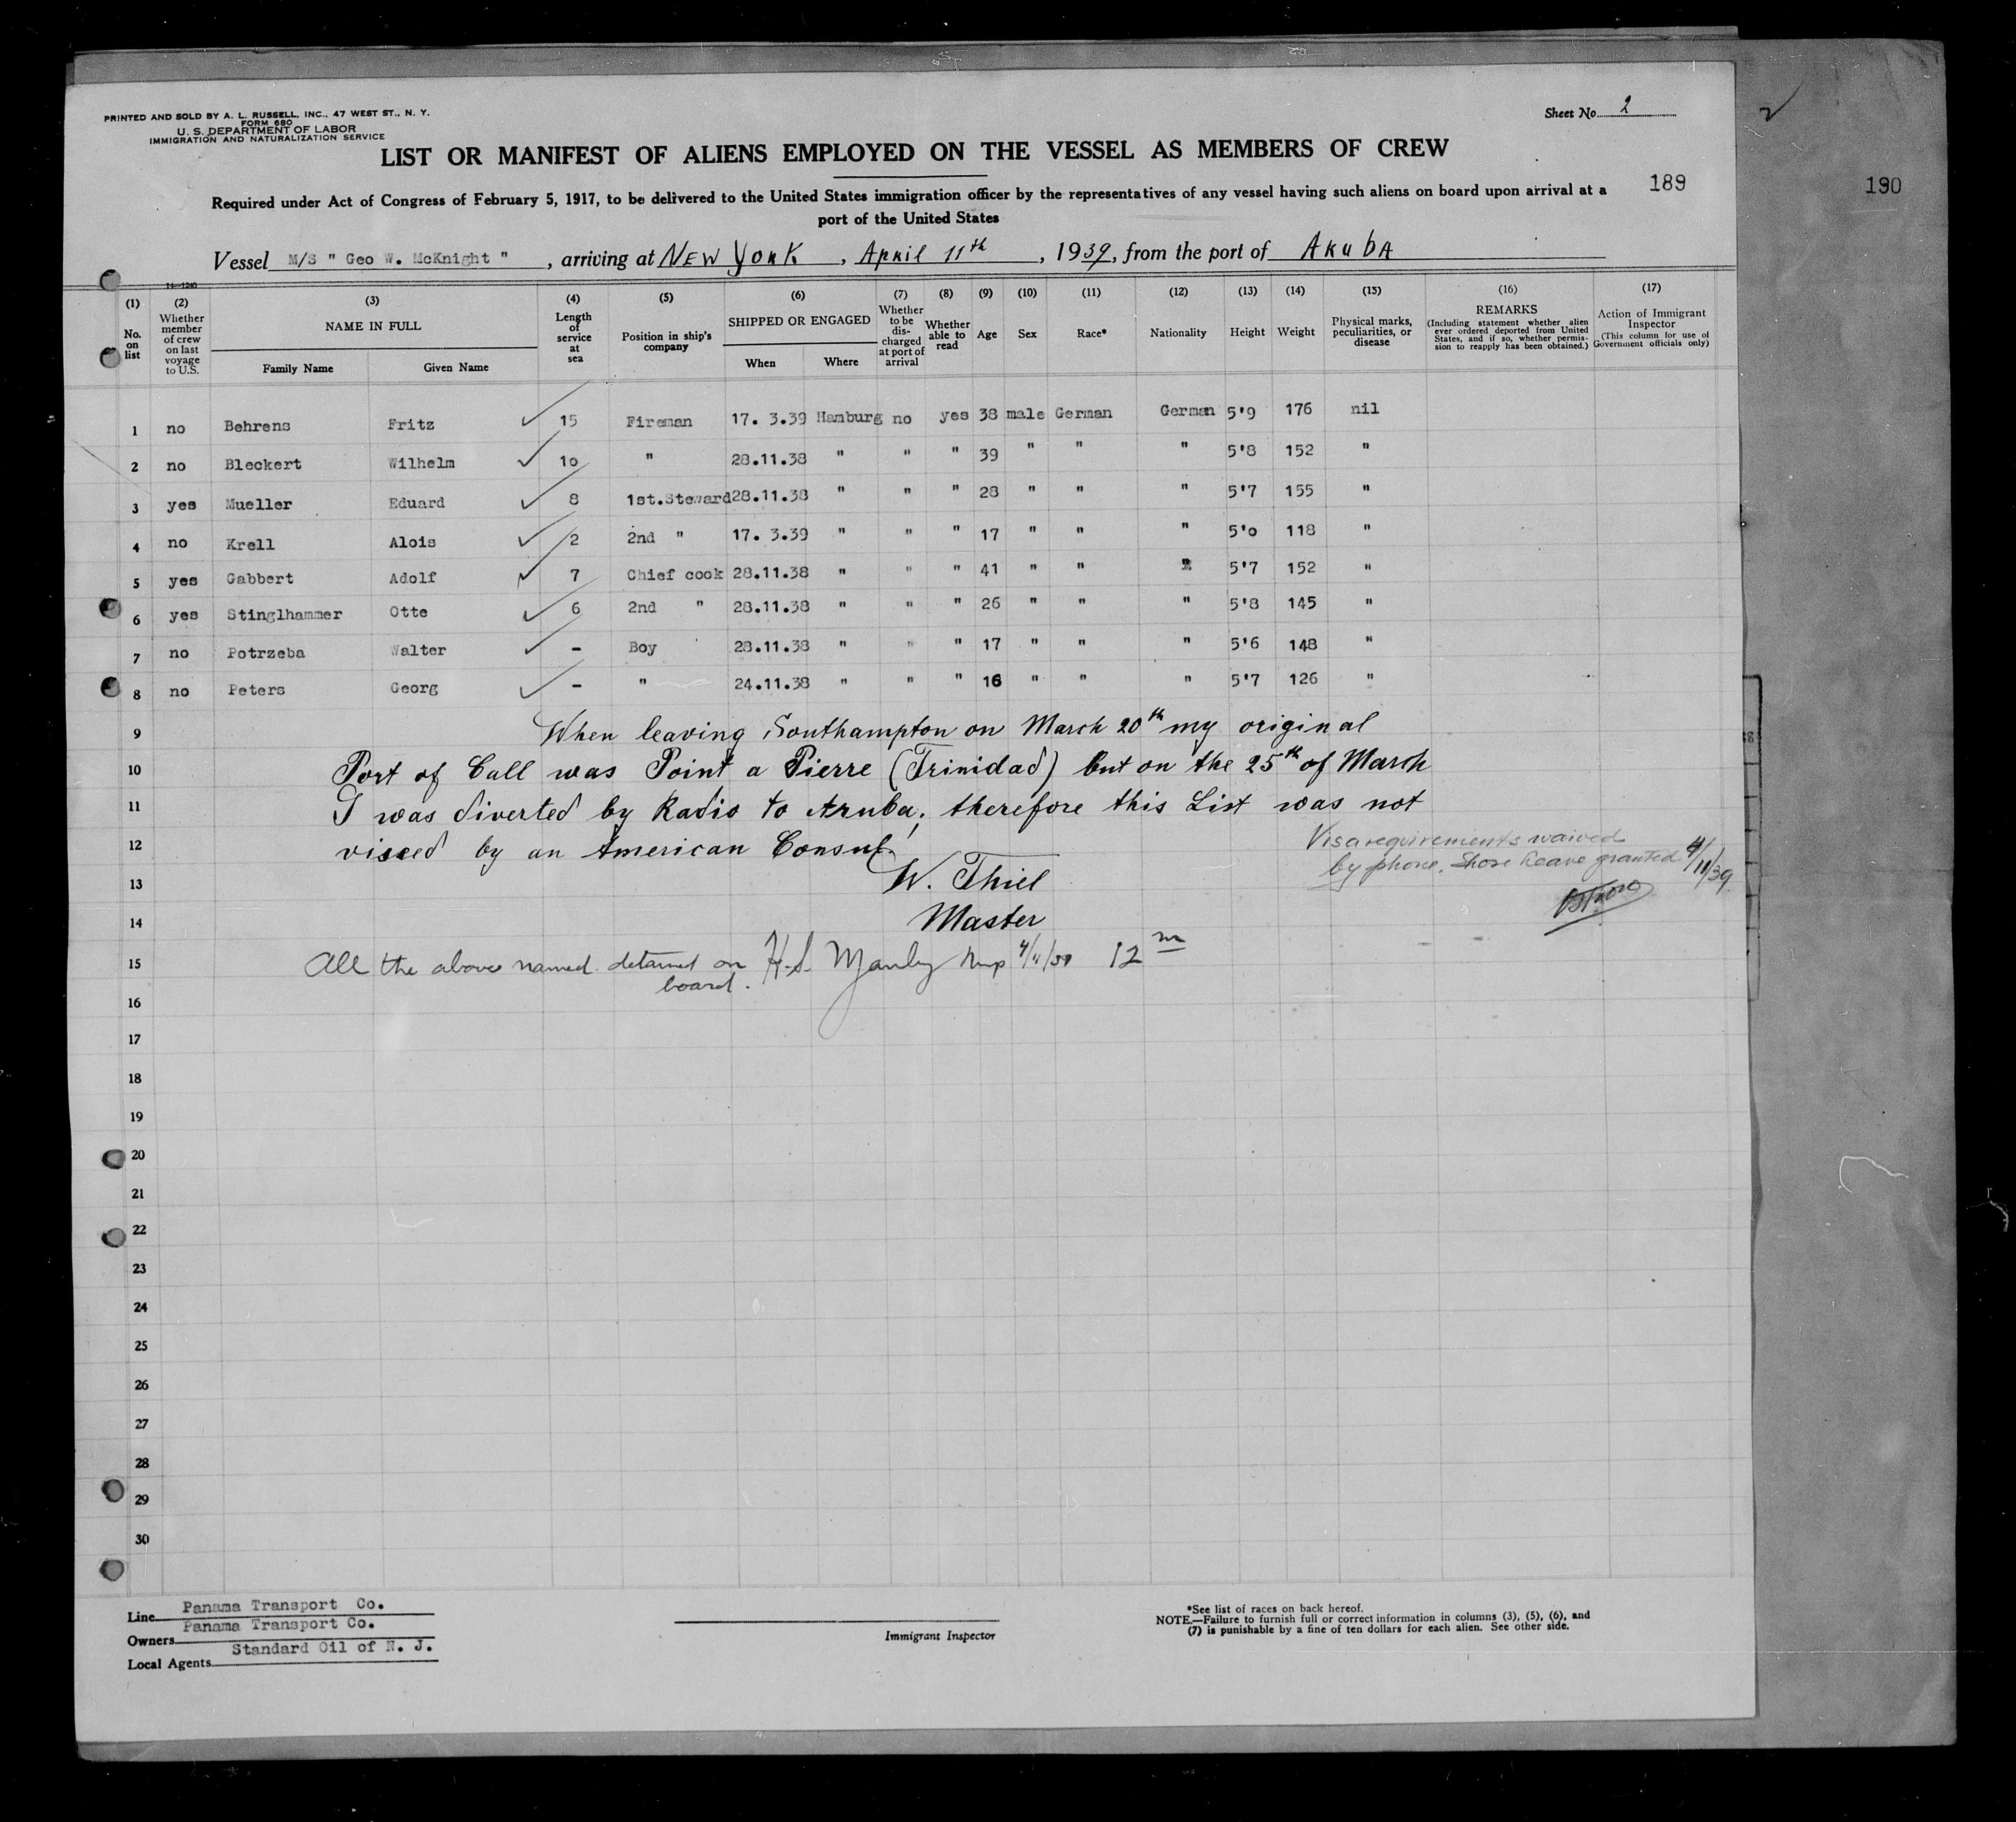 PRINTED AND SOLD BY A. L. RUSSELL, INC., 47 WEST ST., N. Y.
FORM 680
U. S. DEPARTMENT OF LABOR
IMMIGRATION AND NATURALIZATION SERVICE
Sheet No. 2
LIST OR MANIFEST OF ALIENS EMPLOYED ON THE VESSEL AS MEMBERS OF CREW
189
190
Required under Act of Congress of February 5, 1917, to be delivered to the United States immigration officer by the representatives of any vessel having such aliens on board upon arrival at a
port of the United States
Vessel M/S " Geo W. McKnight ", arriving at New York, April 11th, 1939, from the port of Aruba
14—1240
(1) No. on list
(2) Whether member of crew on last voyage to U.S.
(3) NAME IN FULL
Family Name Given Name
(4) Length of service at sea
(5) Position in ship's company
(6) SHIPPED OR ENGAGED
When Where
(7) Whether to be discharged at port of arrival
(8) Whether able to read
(9) Age
(10) Sex
(11) Race*
(12) Nationality
(13) Height
(14) Weight
(15) Physical marks, peculiarities, or disease
(16) REMARKS (Including statement whether alien ever ordered deported from United States, and if so, whether permission to reapply has been obtained.)
(17) Action of Immigrant Inspector (This column for use of Government officials only)
1 no Behrens Fritz 15 Fireman 17. 3.39 Hamburg no yes 38 male German German 5'9 176 nil
2 no Bleckert Wilhelm 10 " 28.11.38 " " " 39 " " " 5'8 152 "
3 yes Mueller Eduard 8 1st.Steward 28.11.38 " " " 28 " " " 5'7 155 "
4 no Krell Alois 2 2nd " 17. 3.39 " " " 17 " " " 5'0 118 "
5 yes Gabbert Adolf 7 Chief cook 28.11.38 " " " 41 " " " 5'7 152 "
6 yes Stinglhammer Otto 6 2nd " 28.11.38 " " " 26 " " " 5'8 145 "
7 no Potrzeba Walter - Boy 28.11.38 " " " 17 " " " 5'6 148 "
8 no Peters Georg - " 24.11.38 " " " 16 " " " 5'7 126 "
9 When leaving Southampton on March 20th my original
10 Port of Call was Point a Pierre (Trinidad) but on the 25th of March
11 I was diverted by Radio to Aruba; therefore this List was not
12 viseed by an American Consul.
Visa requirements waived
by phone. Shore Leave granted 4/11/39
13 W. Thiel
14 Master
15 All the above named detained on H.S. Manley Insp 4/11/39 12 m
board.
16
17
18
19
20
21
22
23
24
25
26
27
28
29
30
Line Panama Transport Co.
Owners Panama Transport Co.
Local Agents Standard Oil of N. J.
Immigrant Inspector
*See list of races on back hereof.
NOTE.—Failure to furnish full or correct information in columns (3), (5), (6), and
(7) is punishable by a fine of ten dollars for each alien. See other side.